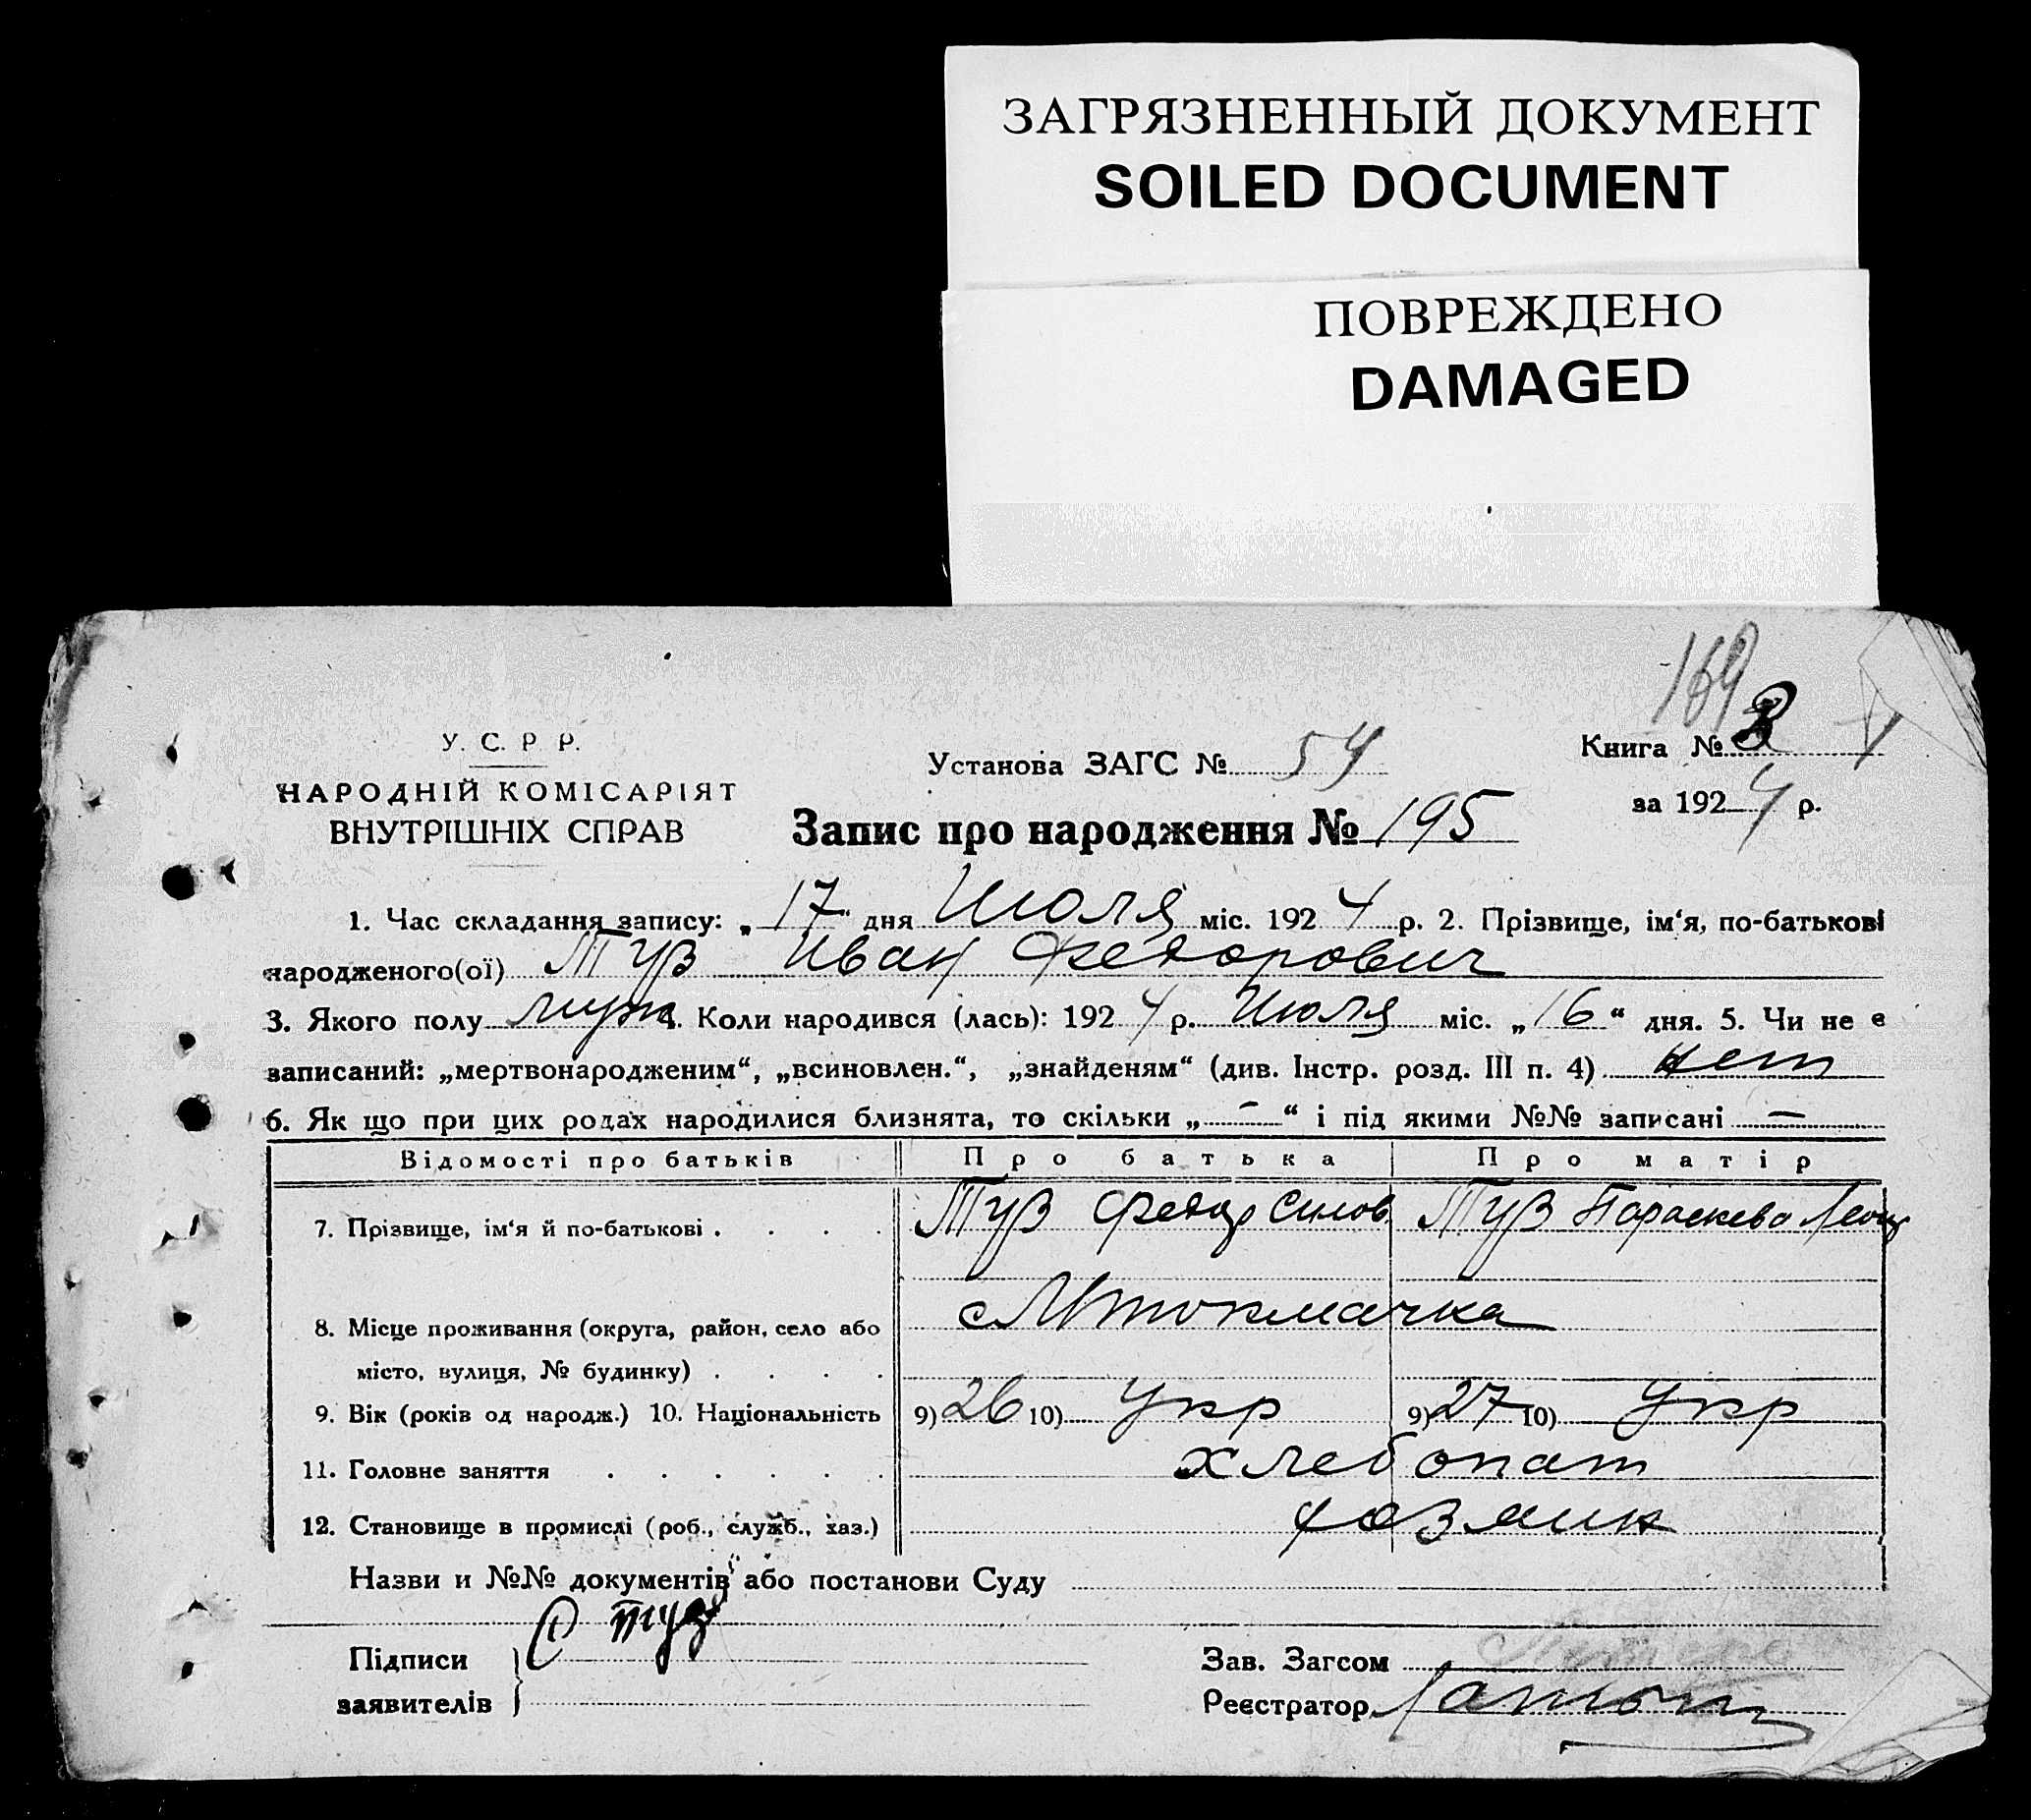 ЗАГРЯЗНЕННЫЙ ДОКУМЕНТ
SOILED DOCUMENT
ПОВРЕЖДЕНО
DAMAGED
169
У. С. Р. Р.
НАРОДНІЙ КОМІСАРІЯТ
ВНУТРІШНІХ СПРАВ
Установа ЗАГС № 54
Книга № 3
за 1924 р.
Запис про народження № 195
1. Час складання запису: „17“ дня Июля міс. 1924 р. 2. Прізвище, ім‘я, по-батькові
народженого(ої) Туз Иван Федорович
3. Якого полу муж 4. Коли народився (лась): 1924 р. Июля міс. „16“ дня. 5. Чи не є
записаний: „мертвонародженим“, „всиновлен.“, „знайденям“ (див. Інстр. розд. III п. 4) нет
6. Як що при цих родах народилися близнята, то скільки „—“ і під якими №№ записані —
Відомості про батьків Про батька Про матір
7. Прізвище, ім‘я й по-батькові . . . . Туз Федор Силов. Туз Параскева
8. Місце проживання (округа, район, село або
місто, вулиця, № будинку) . . . . с Мтокмачка
9. Вік (років од народж.) 10. Національність 9) 26 10) Укр 9) 27 10) Укр
11. Головне заняття . . . . . . хлебопат
12. Становище в промислі (роб., служб., хаз.) хозяин
Назви и №№ документів або постанови Суду
Підписи
заявителів
Ф Туз
Зав. Загсом
Реєстратор